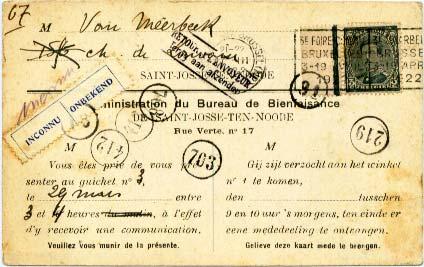 67
M Van Meerbeek
ch. de
SAINT-JOSSE
RETOUR A L'ENVOYEUR
TERUG aan afzender
BRUX
5e FOIRE
BRUX
3-19 APR
1922
inconnu
INCONNU ONBEKEND
Administration du Bureau de Bienfaisance
DE SAINT-JOSSE-TEN-NOODE
Rue Verte, n° 17
412
703
219
M
Vous êtes prié de vous pré-
senter au guichet n° 3,
le 29 mars entre
3 et 4 heures du matin, à l'effet
d'y recevoir une communication.
Veuillez vous munir de la présente.
M
Gij zijt verzocht aan het winket
n° 1 te komen,
den tusschen
9 en 10 uur 's morgens, ten einde er
eene mededeeling te ontvangen.
Gelieve deze kaart mede te brengen.